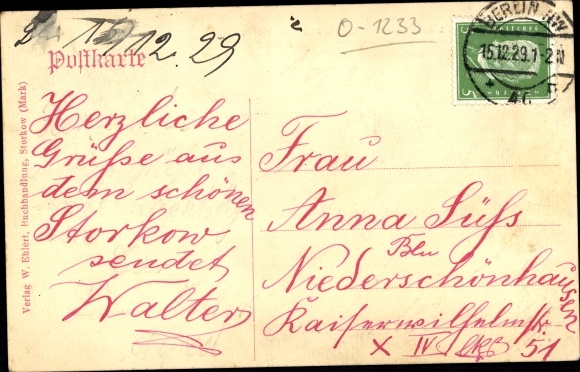 15/12.29
O-1233
Postkarte
BERLIN NW
15.12.29.1-2N
5
Herzliche
Grüße aus
dem schönen
Storkow
sendet
Walter
Frau
Anna Süss
Bln
Niederschönhausen
Kaiserwilhelmstr.
51
X IV
Verlag W. Ehlert, Buchhandlung, Storkow (Mark)